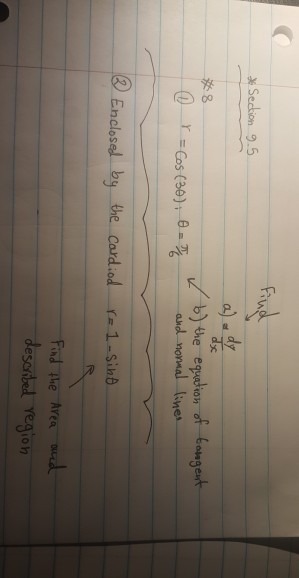 * Section 9.5
Find
#8
a) = dy
dx
① r = Cos(3θ); θ = π
6
b) the equation of tangent
and normal lines
② Enclosed by the Cardiod r = 1 - Sinθ
Find the Area and
described region